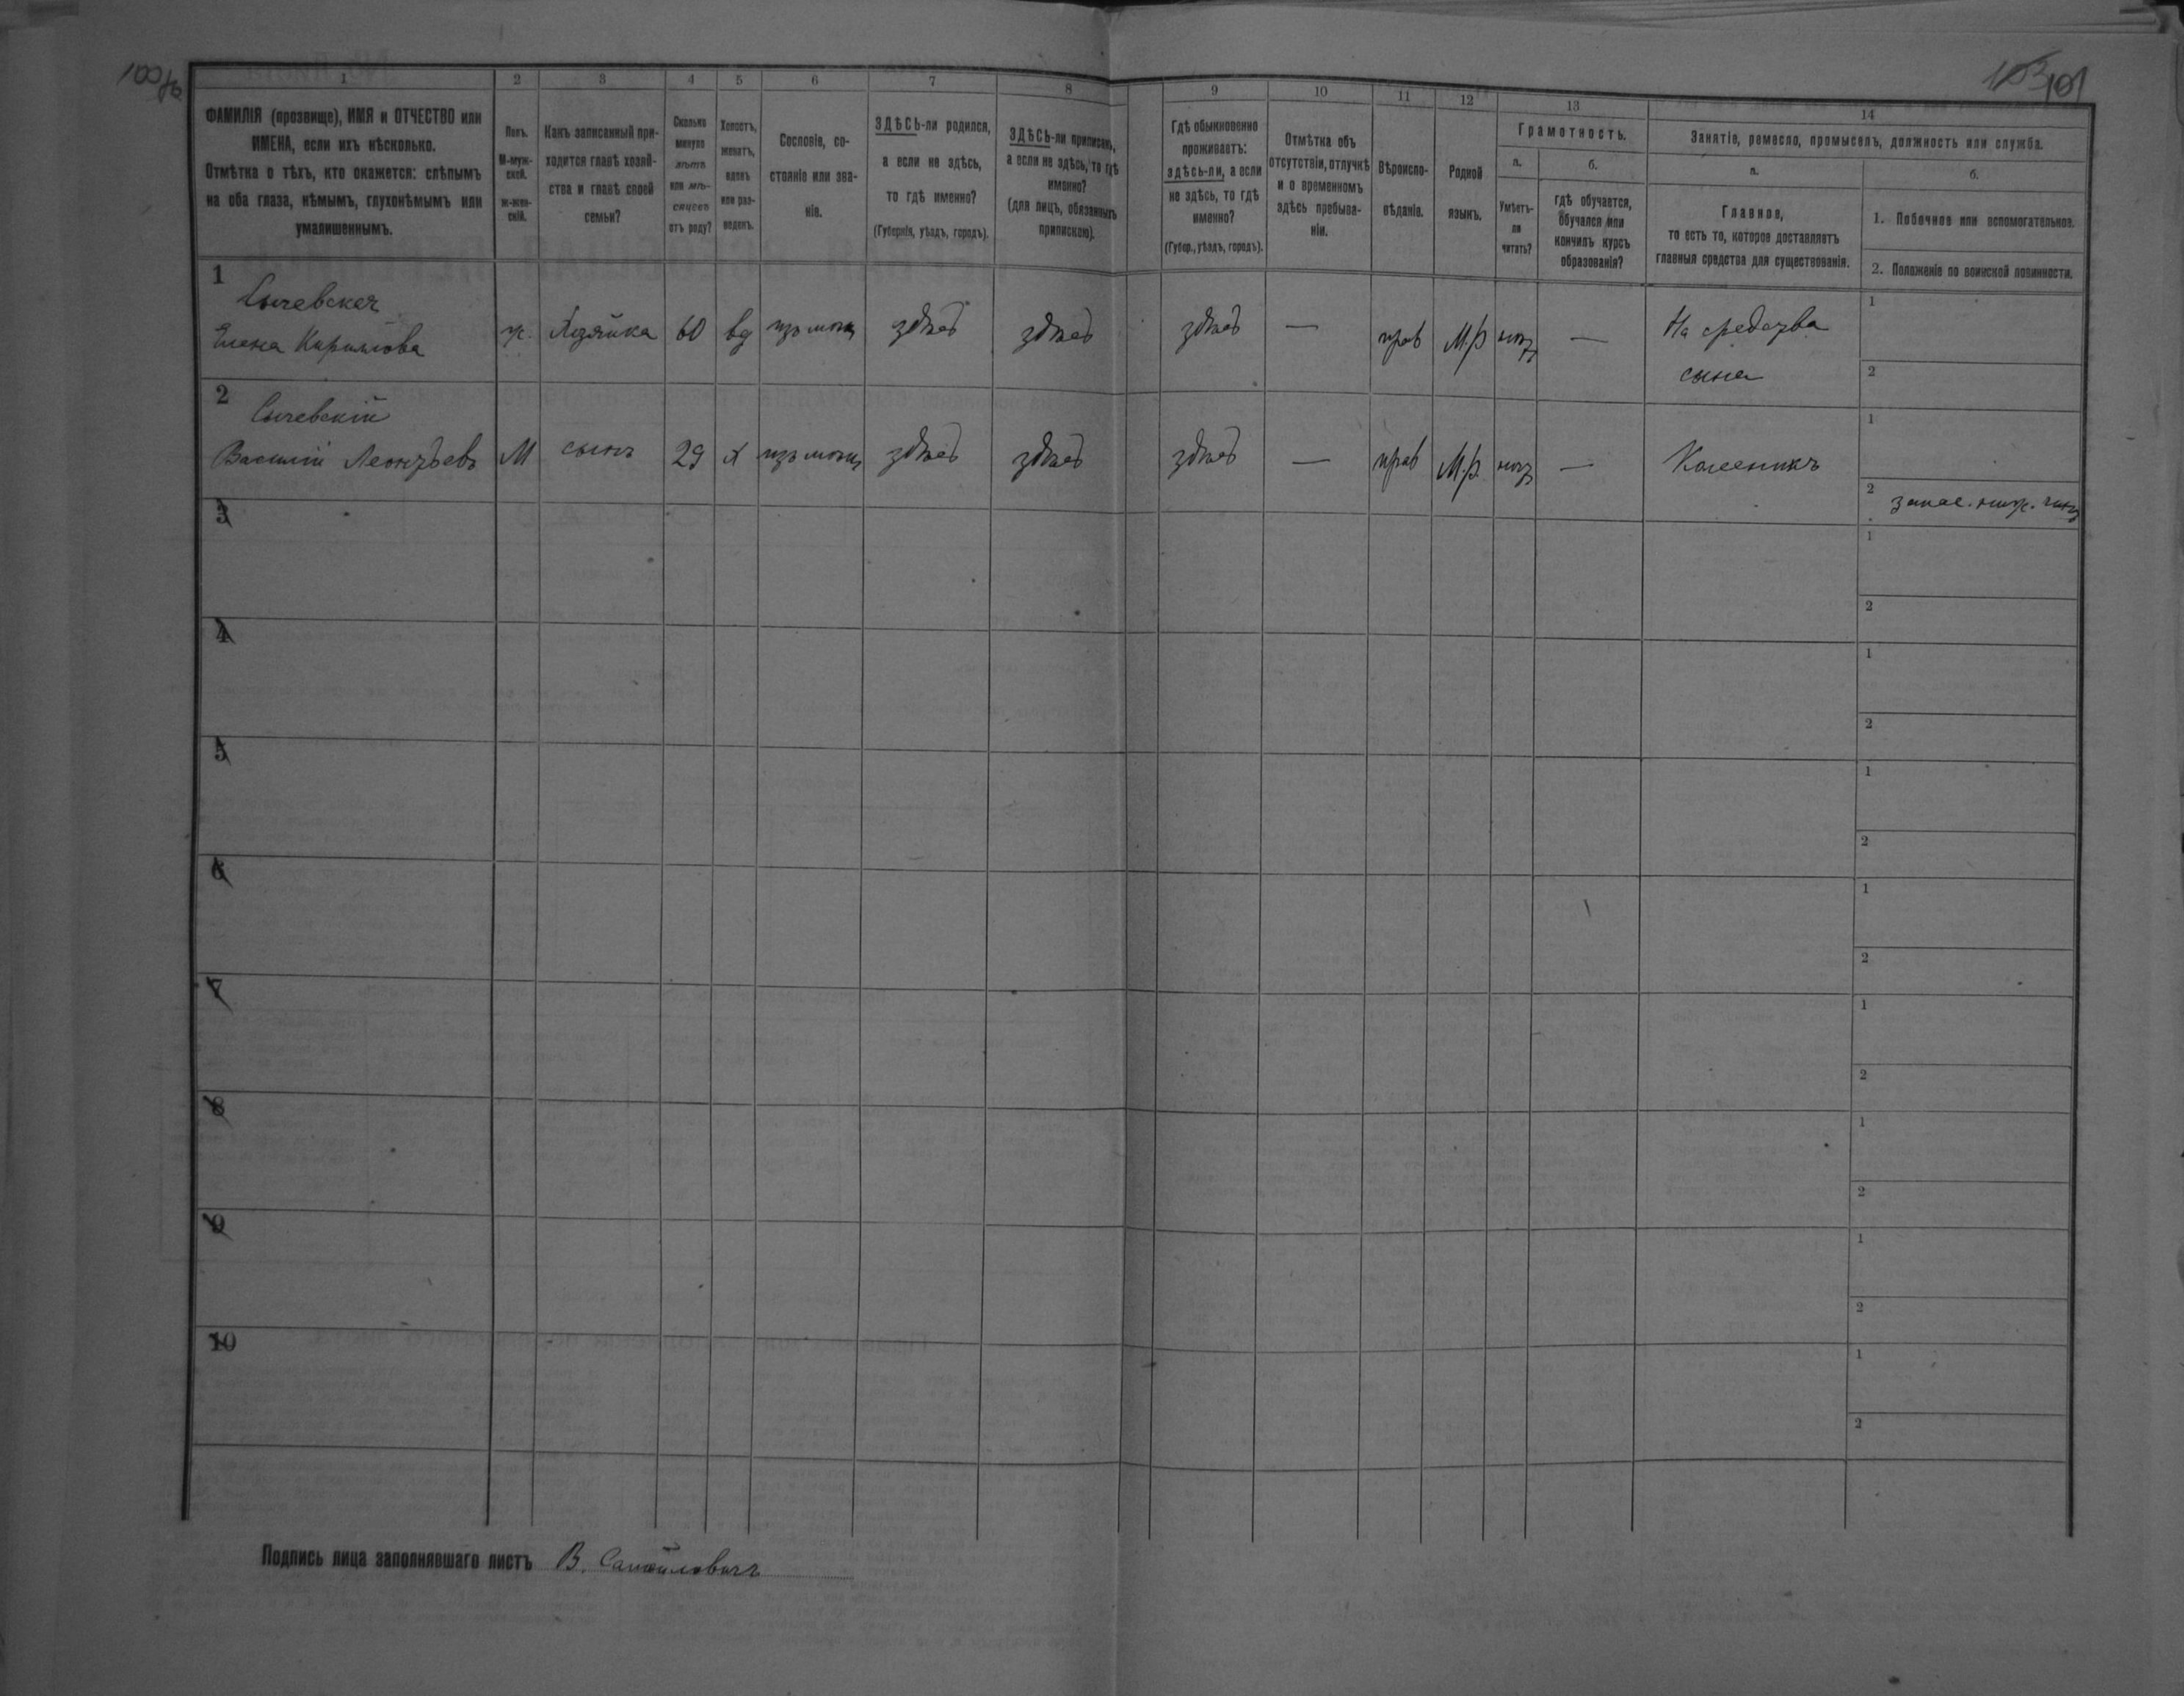 100 об
103 101
1
2
3
4
5
6
7
8
9
10
11
12
13
14
ФАМИЛІЯ (прозвище), ИМЯ и ОТЧЕСТВО или
ИМЕНА, если ихъ нѣсколько.
Отмѣтка о тѣхъ, кто окажется: слѣпымъ
на оба глаза, нѣмымъ, глухонѣмымъ или
умалишеннымъ.
Полъ.
М-муж-
ской.
ж-жен-
скій.
Какъ записанный при-
ходится главѣ хозяй-
ства и главѣ своей
семьи?
Сколько
минуло
лѣтъ
или мѣ-
сяцевъ
отъ роду?
Холостъ,
женатъ,
вдовъ
или раз-
веденъ.
Сословіе, со-
стояніе или зва-
ніе.
ЗДѢСЬ-ли родился,
а если не здѣсь,
то гдѣ именно?
(Губернія, уѣздъ, городъ).
ЗДѢСЬ-ли приписанъ,
а если не здѣсь, то гдѣ
именно?
(для лицъ, обязанныхъ
припискою).
Гдѣ обыкновенно
проживаетъ:
здѣсь-ли, а если
не здѣсь, то гдѣ
именно?
(Губер., уѣздъ, городъ).
Отмѣтка объ
отсутствіи, отлучкѣ
и о временномъ
здѣсь пребыва-
ніи.
Вѣроиспо-
вѣданіе.
Родной
языкъ.
Грамотность.
а.
Умѣетъ-
ли
читать?
б.
гдѣ обучается,
обучался или
кончилъ курсъ
образованія?
Занятіе, ремесло, промыселъ, должность или служба.
а.
Главное,
то есть то, которое доставляетъ
главныя средства для существованія.
б.
1. Побочное или вспомогательное.
2. Положеніе по воинской повинности.
1
Сычевская
Елена Кирилова
ж. Хозяйка 60 вд здѣсь здѣсь здѣсь — прав М.р — На средства
сына
1
2
2
Сычевскій
Василій Леонтьевъ М сынъ 29 х здѣсь здѣсь здѣсь — прав М.р. — Колесникъ
1
2 запас. ниж. чин
3
1
2
4
1
2
5
1
2
6
1
2
7
1
2
8
1
2
9
1
2
10
1
2
Подпись лица заполнявшаго листъ В. Самойловичъ